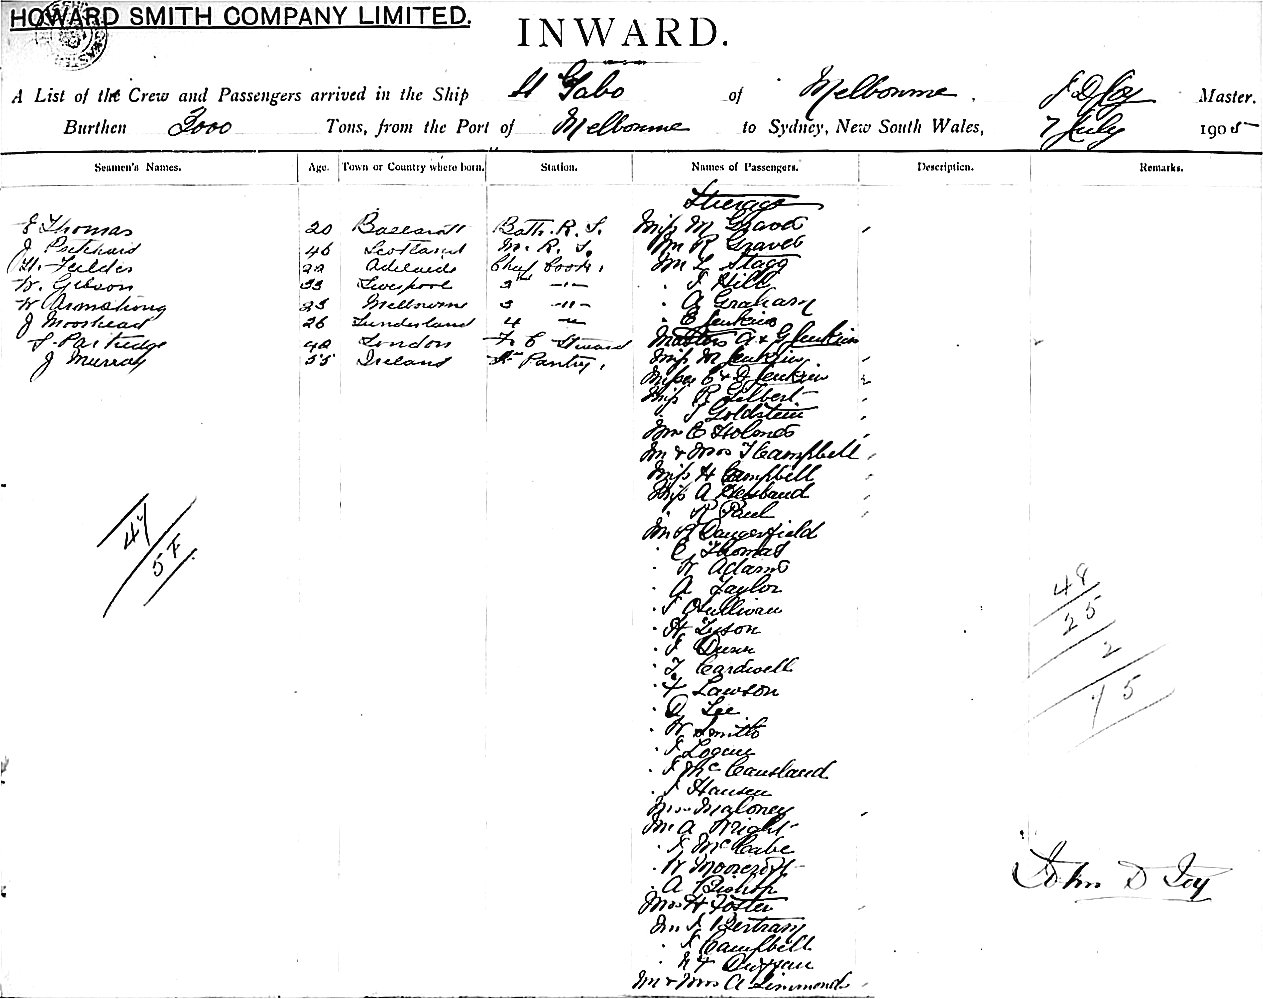 HOWARD SMITH COMPANY LIMITED.
INWARD.
A List of the Crew and Passengers arrived in the Ship St Gabo of Melbourne. J D Joy Master.
Burthen 2000 Tons, from the Port of Melbourne to Sydney, New South Wales, 7 July 1905
Seamen's Names. Age. Town or Country where born. Station. Names of Passengers. Description. Remarks.
Steerage
E Thomas 20 Ballarat Bath. R. S. Miss M Graves
J Pritchard 46 Scotland M. R. S. Mr R Graves
H. Fielder 22 Adelaide Chief Cook. Mr L Stagg
W. Gibson 33 Liverpool 2nd -"- . F Hill
W Armstrong 25 Melbourne 3 -"- . A Graham
J Moorhead 26 Sunderland 4 " . E Jenkins
S. Partridge 42 London F. C. Steward Masters A & G Jenkins
J Murray 55 Ireland Pantry. Miss M Jenkins
Misses E & D Jenkins
Miss R Gilbert
. J Goldstein
Mrs E Holmes
Mr & Mrs T Campbell
Miss H Campbell
Miss A Husband
. R Paul
Mr R Dangerfield
. E Thomas
. W Adams
. A Taylor
. J OSullivan
. H Tyson
. J Dunn
. T Cardwell
. F Lawson
. D Lee
. W Smith
. J Logan
. J McCausland
. J Hansen
Mrs Maloney
Mr A Wright
. J McCabe
. W Moorcroft
. A Bishop
Mrs H Foster
Mr J Bertram
. J Campbell
Mr & Mrs A Simmonds
47
57
48
25
2
75
John D Joy